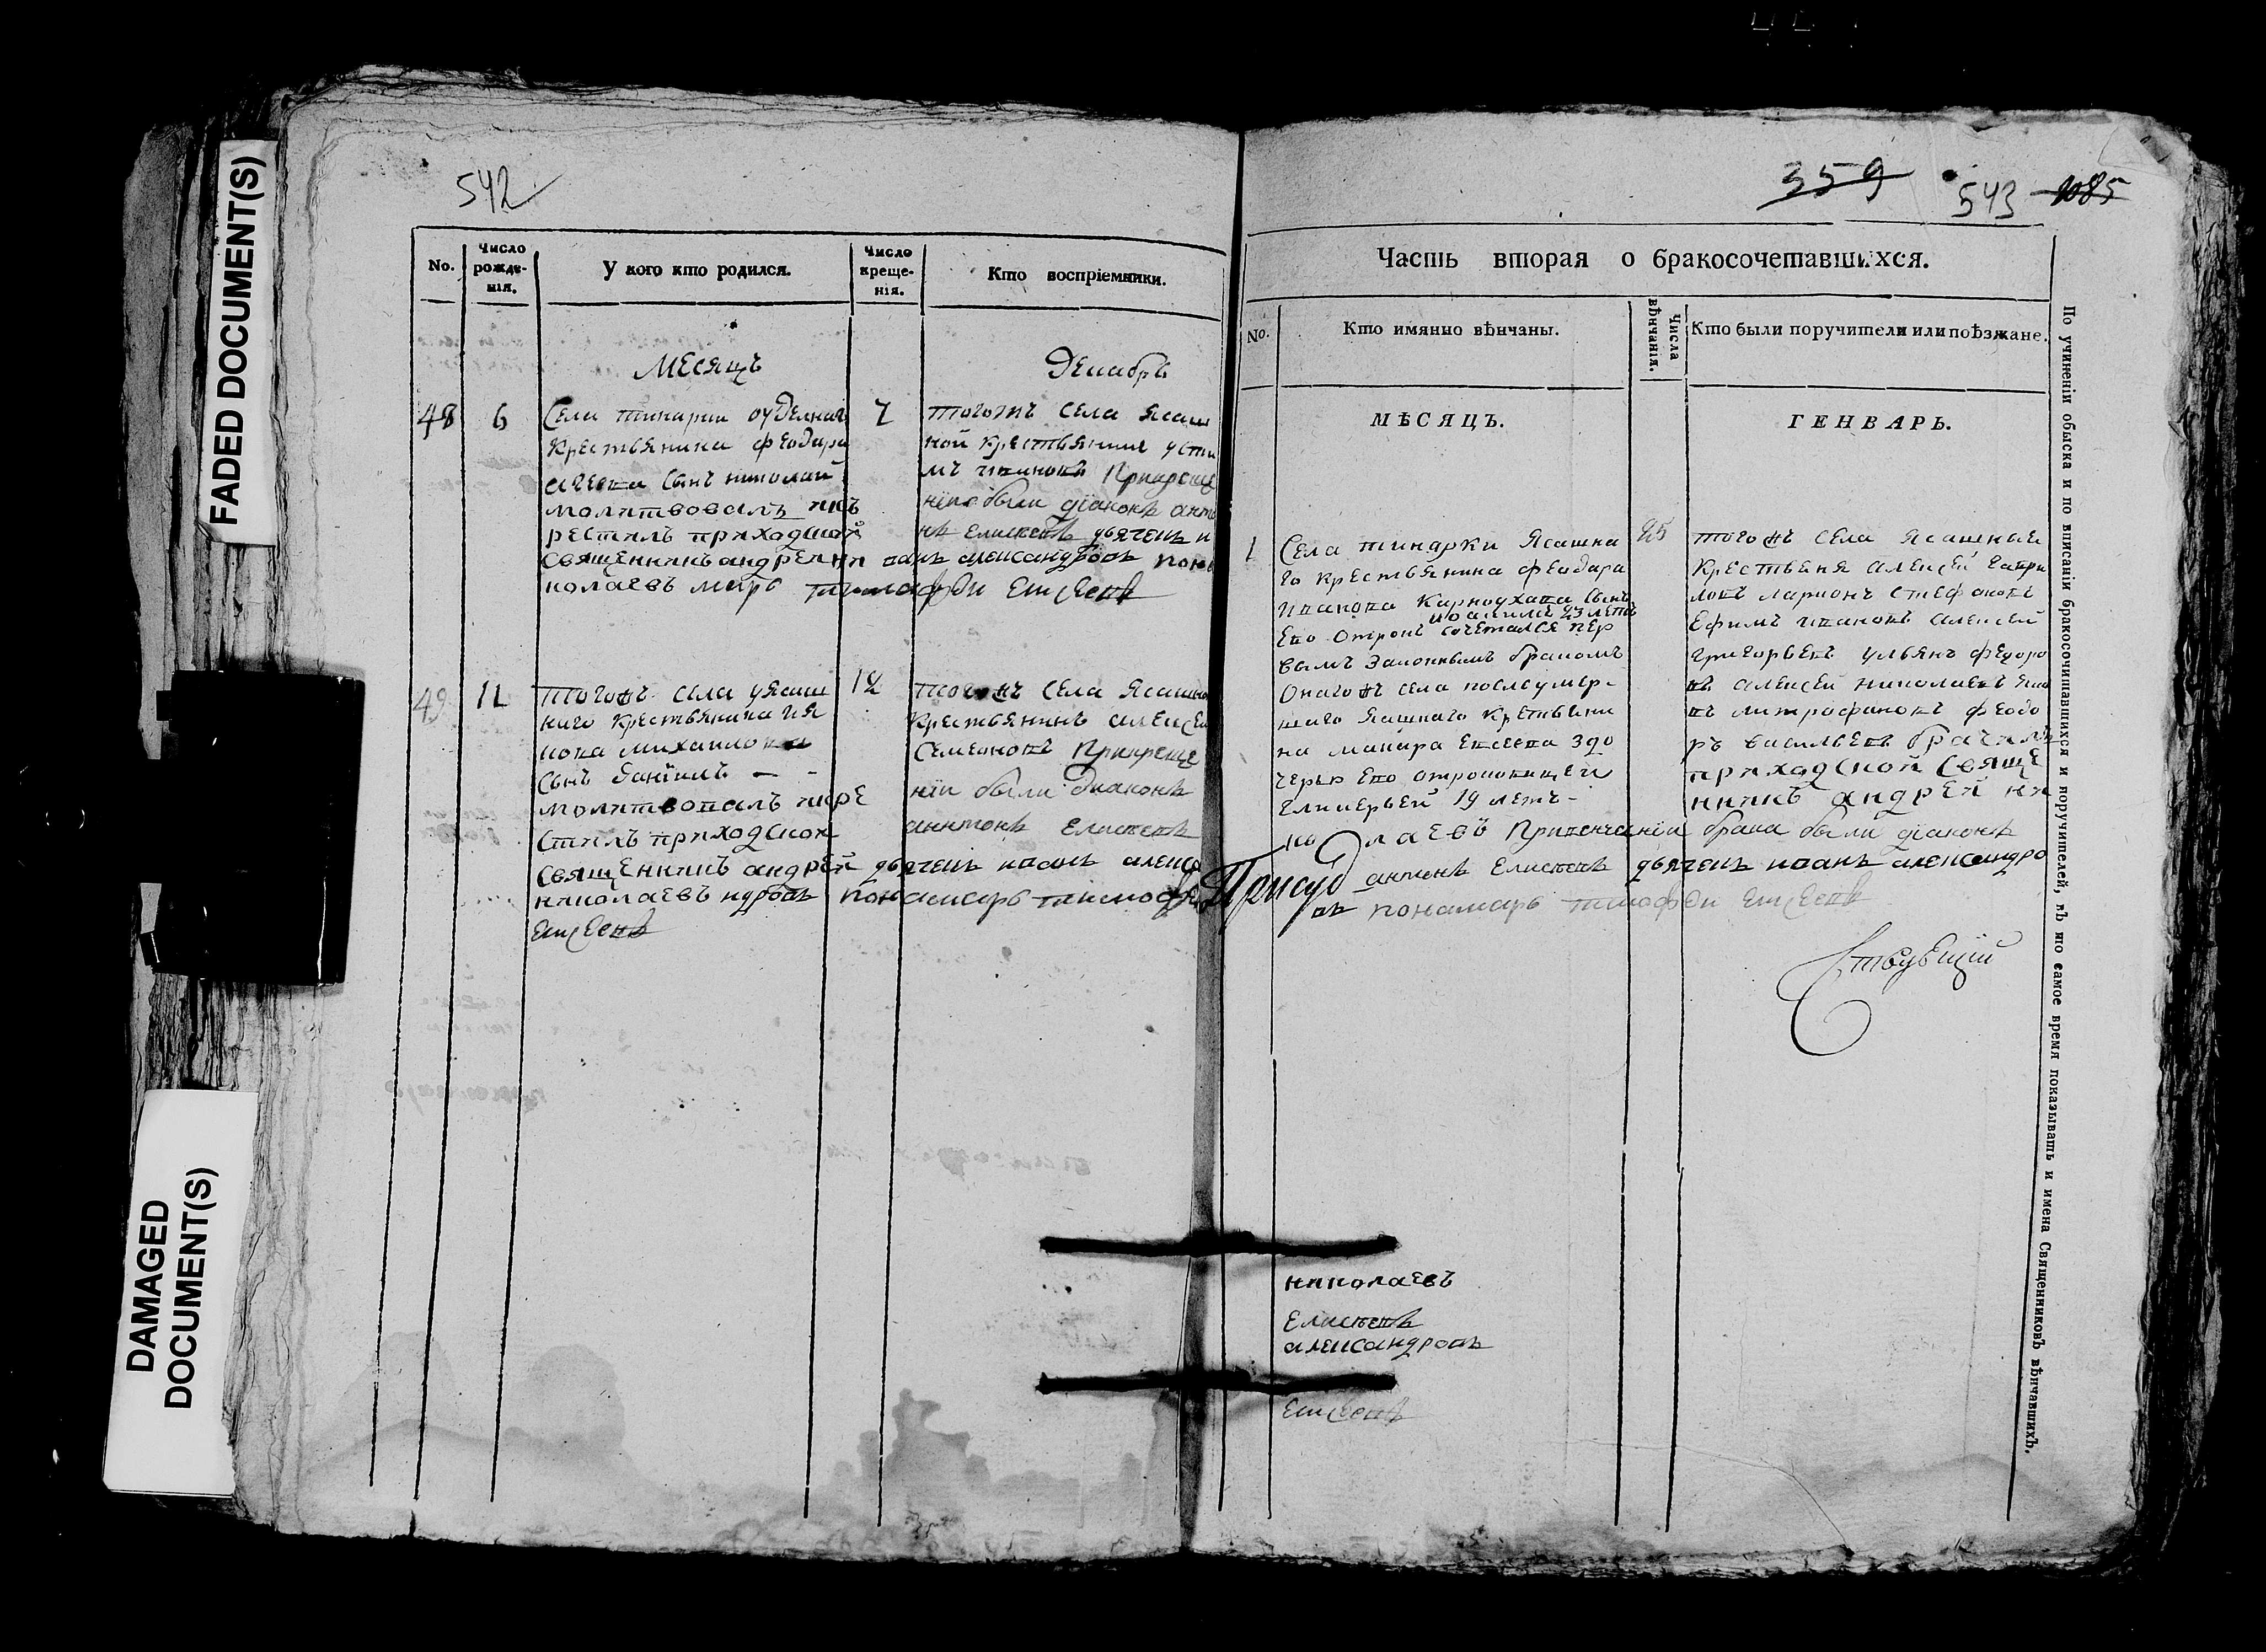 FADED DOCUMENT(S)
DAMAGED
DOCUMENT(S)
542
No.
Число
рожде-
нія.
У кого кто родился.
Число
креще-
нія.
Кто воспріемники.
Месяцъ
Декабрь
48
6
Села
крестьянина феодора
сынъ николай
молитвовалъ икъ
рестилъ приходской
священникъ андрей ни
колаевъ
7
тогожъ села ясаш
ной крестьянинъ усти
мъ ивановъ Прикреще
ніи были діаконъ анто
нъ елисеевъ дьячекъ и
ванъ александровъ
49
12
тогожъ села
наго крестьянина
михаилова
сынъ даніилъ
молитвовалъ икре
стилъ приходской
священникъ андрей
николаевъ
тогожъ села ясашной
крестьянинъ алексей
семеновъ Прикреще
ніи были диаконъ
антонъ елисеевъ
дьячекъ иванъ
понамарь тимофей
359
543
1085
Часть вторая о бракосочетавшихся.
No.
Кто имянно вѣнчаны.
Числа
вѣнчанія.
Кто были поручители или поѣзжане.
МѢСЯЦЪ.
ГЕНВАРЬ.
1
Села тинарки Ясашна
го крестьянина феодора
иванова Карноухова сынъ
23 летъ
Ево отрокъ сочетался пер
вымъ законнымъ бракомъ
Онагожъ села послеумер-
шаго Ясашнаго крестьяни
на макара здо
черью Ево отроковицей
гликерьей 19 летъ-
25
тогожъ села Ясашныя
крестьяня алексей гаври
ловъ ларионъ стефановъ
Ефимъ ивановъ алексей
григорьевъ ульянъ федоро
въ алексей николаевъ
митрофановъ феодо
ръ васильевъ
приходской свяще
нникъ андрей ни
колаевъ Привенчаніи брака были діаконъ
антонъ елисеевъ дьячекъ иванъ александро
въ понамарь тимофей
Присуд
ствующій
николаевъ
елисеевъ
александровъ
По учиненіи обыска и по вписаніи бракосочитавшихся и поручителей, въ то самое время показывать и имена Священниковъ вѣнчавшихъ.